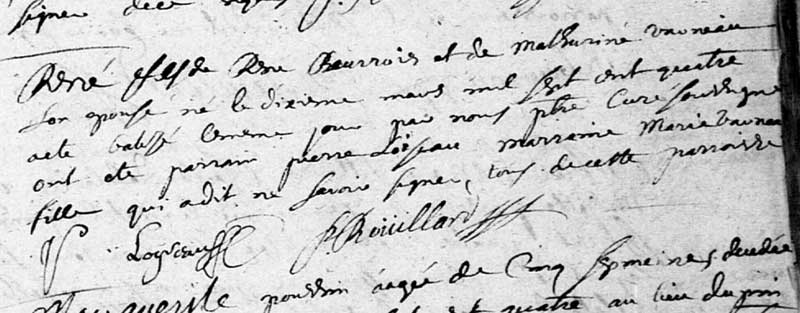 signer
René fils de René Bourrois et de Mathurine
son epouse né le dixieme mars mil sept cent quatre
acte batissé lememe jour par nous pbre Curé soussigné
ont ete parrain pierre Loiseau marraine Marie
fille qui a dit ne savoir signer, tous de cette parroisse
P Rouillard
aagée de Cinq sepmaines decedée
quatre au lieu du pin